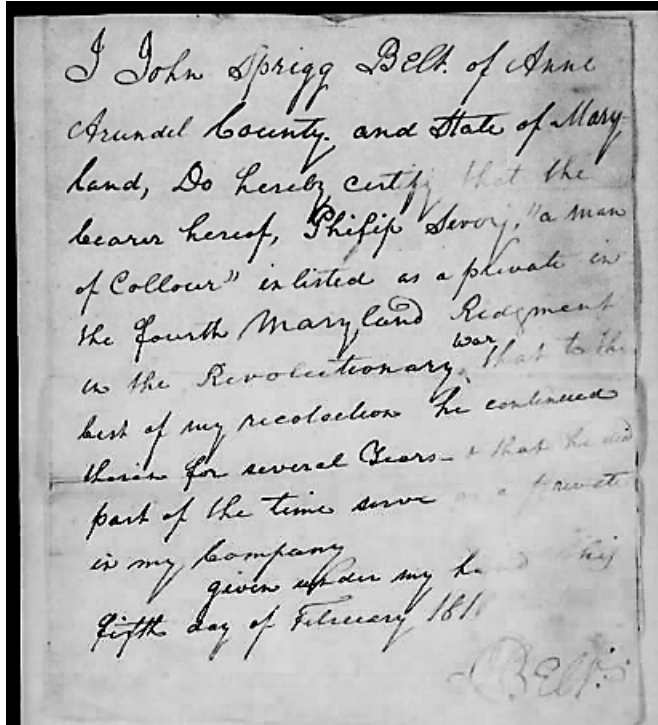 I John Sprigg Belt. of Anne
Arundel County. and State of Mary-
land, Do hereby certify that the
bearer hereof, Philip Savoy, "a man
of Collour" inlisted as a private in
the fourth Maryland Redgment
in the Revolutionary War, that to the
best of my recolection he continued
therin for several Years - & that he did
part of the time serve as a private
in my Company
given under my hand this
fifth day of February 1818
Belt.